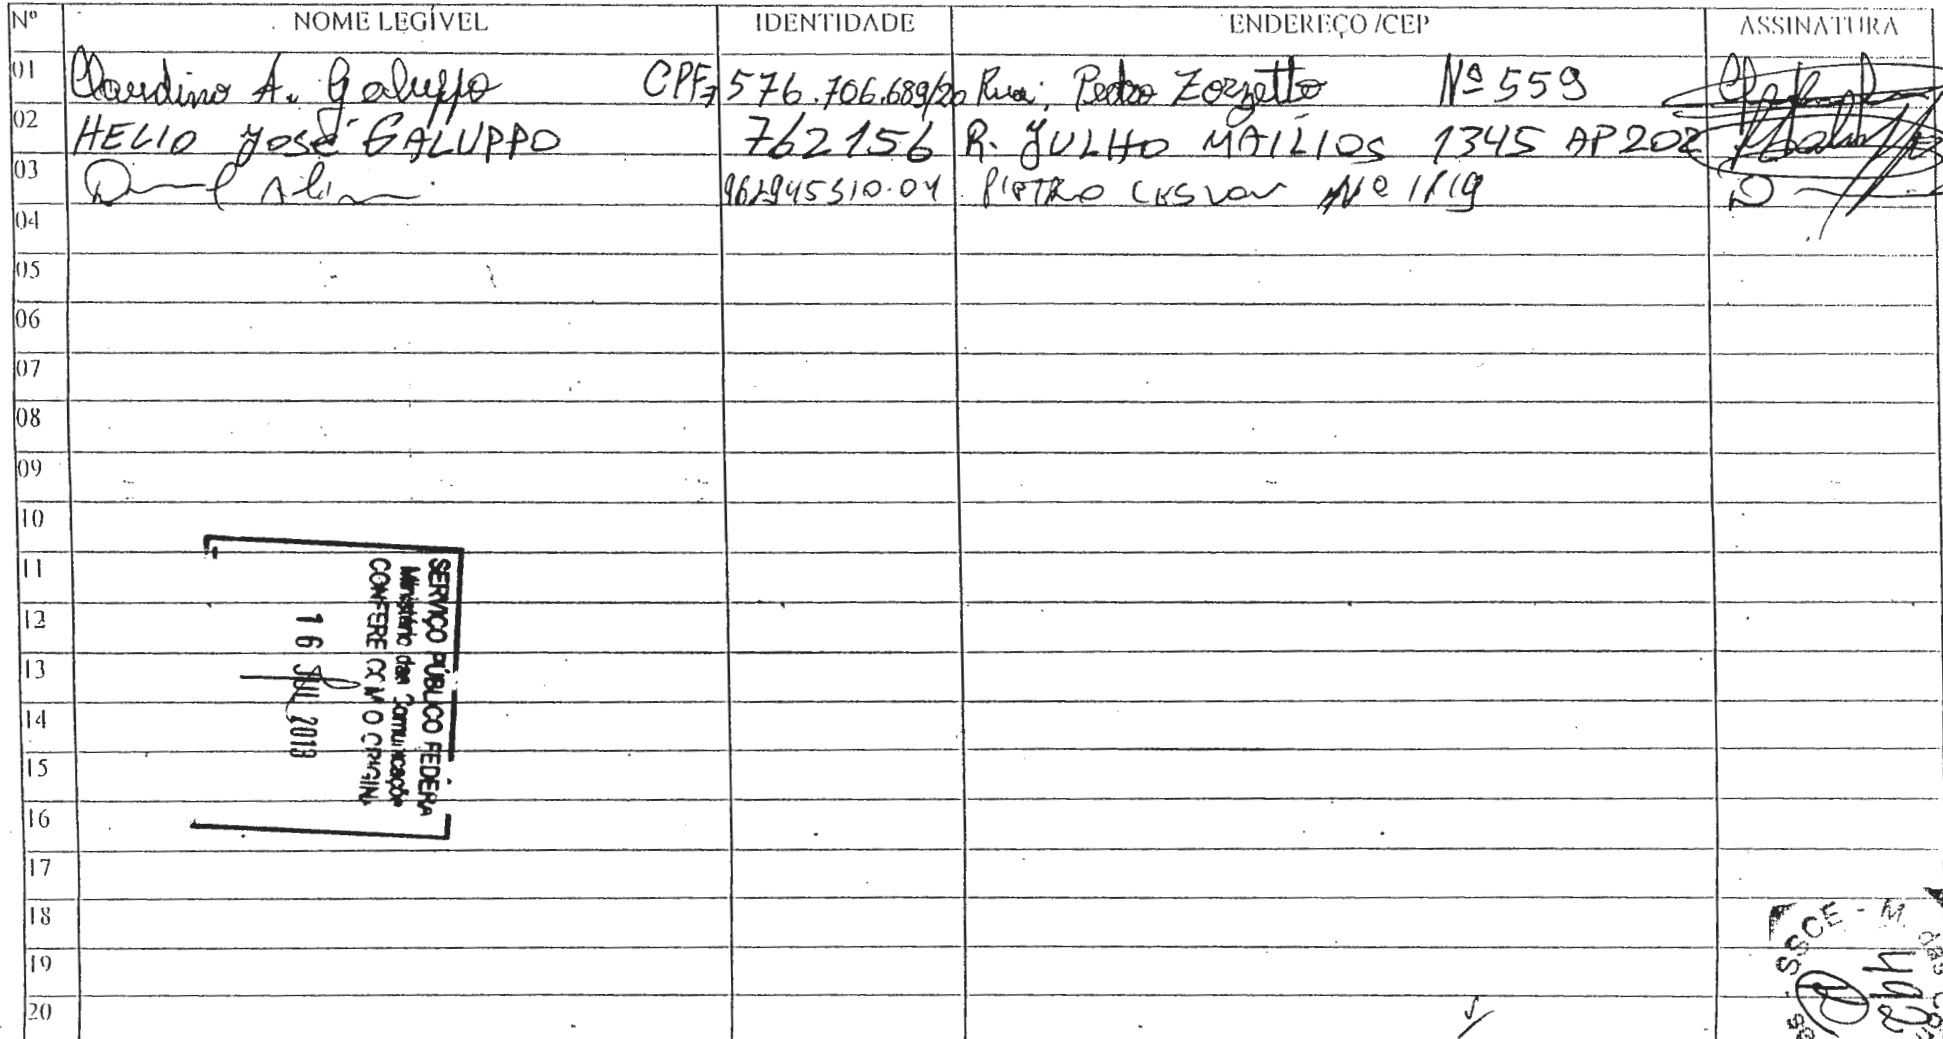 Nº NOME LEGÍVEL IDENTIDADE ENDEREÇO/CEP ASSINATURA
01 Claudino A. Galuppo CPF= 576.706.689/20 Rua: Pedro Zorzetto Nº 559
02 HELIO JOSÉ GALUPPO 762156 R. JULHO MAILIOS 1345 AP 202
03 962945310-04 PIETRO Nº 1119
04
05
06
07
08
09
10
11
12
13
14
15
16
17
18
19
20
SERVIÇO PÚBLICO FEDERA
Ministério das Comunicaçõe
CONFERE COM O ORIGIN
16 JUL 2013
SSCE - M. das Com